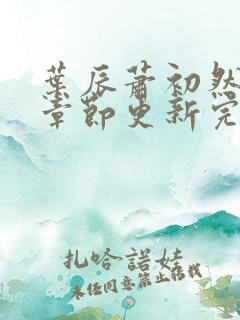 葉辰蕭初然
章節更新完
扎哈諾娃
未经同意禁止转载